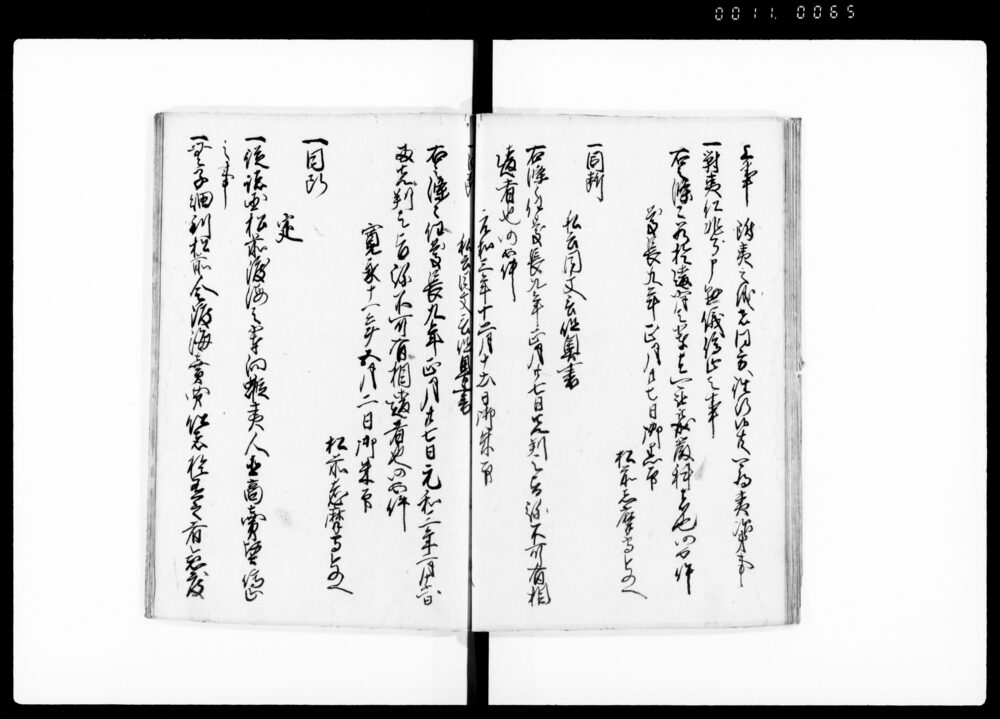 0011.0065
上事 附夷之儀者何方江往行候共可為夷次第事
一対夷仁非分申懸儀停止之事
右之條々若於違背之輩者可処厳科者也仍如件
慶長九年正月廿七日御黒印
松前志摩守とのへ
一同判
私云同文言但奥書
右條々任慶長九年正月廿七日先判之旨弥不可有相
違者也仍如件
元和三年十二月十六日御朱印
一同判 私云同文言但奥書
右之條々任慶長九年正月廿七日元和三年十二月十六日
両先判之旨弥不可有相違者也仍如件
寛永十一年五月二日御朱印
松前志摩守とのへ
一同断
定
一従諸国松前渡海之輩向蝦夷人直商売堅停止
之事
一無子細到松前令渡海売買仕者於在之者急度